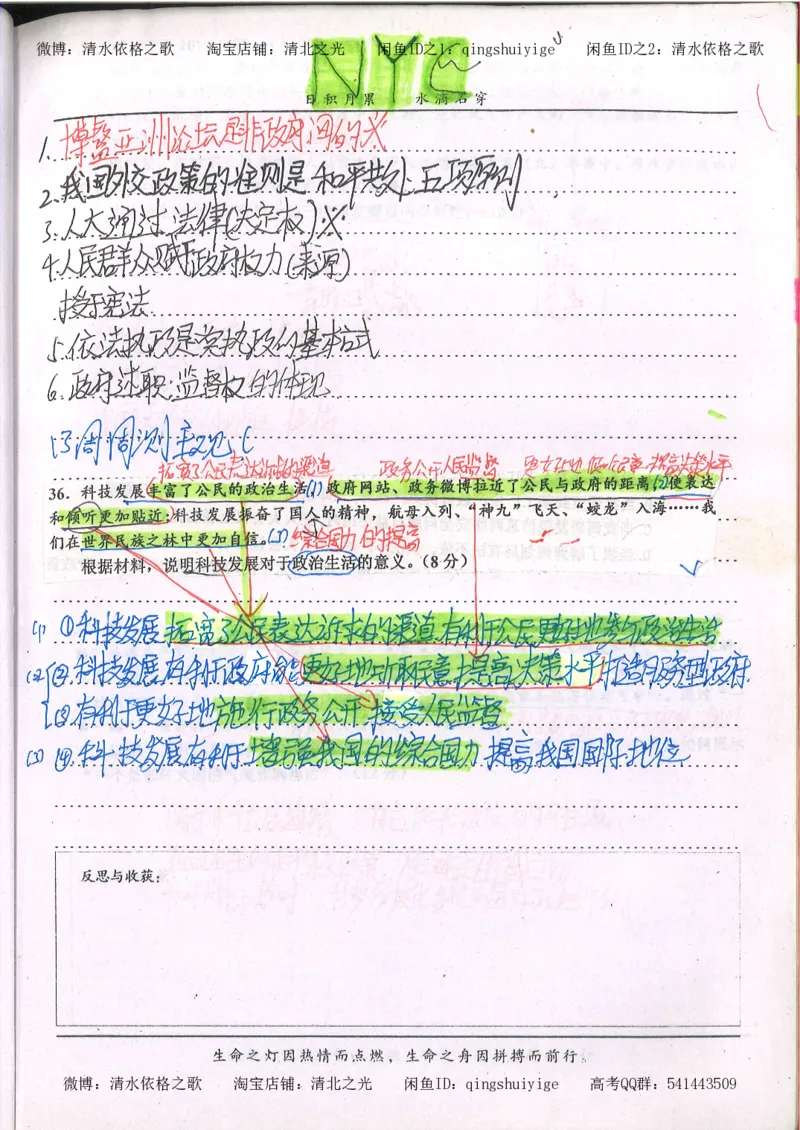 微博：清水依格之歌 淘宝店铺：清北之光 闲鱼ID之1：qingshuiyige 闲鱼ID之2：清水依格之歌
NYC
日积月累 水滴石穿
1. 博鳌亚洲论坛是非政府间的※
2. 我国外交政策的准则是和平共处五项原则
3. 人大通过法律(决定权)※
4. 人民群众赋于政府权力(来源)
授于宪法
5. 依法执政是党执政的基本方式
6. 政府述职：监督权的体现
13周周测主观:(
拓宽了公民表达诉求的渠道 政务公开人民监督 更好地 提高决策水平
36．科技发展丰富了公民的政治生活(1)政府网站、政务微博拉近了公民与政府的距离(2)使表达
和倾听更加贴近；科技发展振奋了国人的精神，航母入列、“神九”飞天、“蛟龙”入海……我
们在世界民族之林中更加自信。(3) 综合国力的提高
根据材料，说明科技发展对于政治生活的意义。（8 分）
(1) ①科技发展拓宽了公民表达诉求的渠道,有利于公民更好地参与政治生活
(2) ②.科技发展,有利于政府能更好地听取民意,提高决策水平,打造服务型政府.
③有利于更好地施行政务公开,接受人民监督
(3) ④.科技发展有利于增强我国的综合国力,提高我国国际地位
反思与收获：
生命之灯因热情而点燃，生命之舟因拼搏而前行。
微博：清水依格之歌 淘宝店铺：清北之光 闲鱼ID：qingshuiyige 高考QQ群：541443509